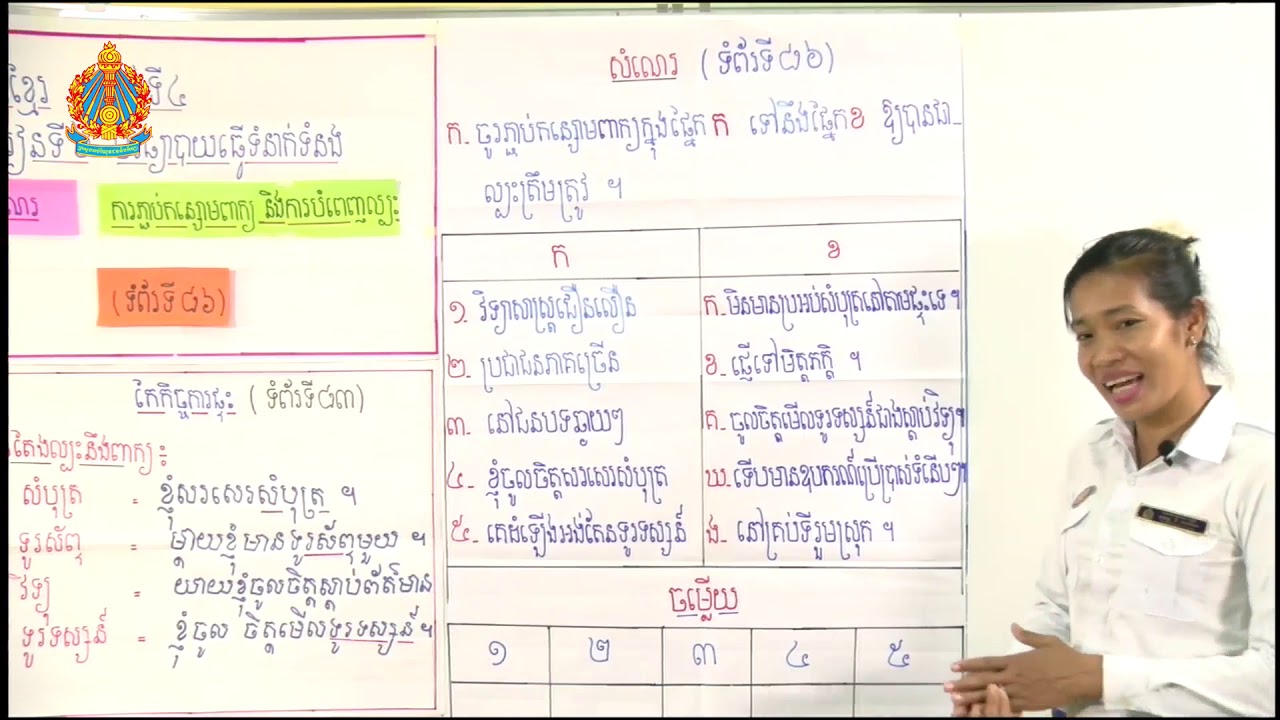 ខ្មែរ ទី៤
មធ្យោបាយធ្វើទំនាក់ទំនង
ការភ្ជាប់កន្សោមពាក្យ និងការបំពេញល្បះ
(ទំព័រទី៨៦)
កែកិច្ចការផ្ទះ (ទំព័រទី៨៣)
តែងល្បះនឹងពាក្យ៖
សំបុត្រ = ខ្ញុំសរសេរសំបុត្រ ។
ទូរស័ព្ទ = ម្តាយខ្ញុំមានទូរស័ព្ទមួយ ។
វិទ្យុ = យាយខ្ញុំចូលចិត្តស្តាប់ព័ត៌មាន
ទូរទស្សន៍ = ខ្ញុំចូល ចិត្តមើលទូរទស្សន៍ ។
សំណេរ (ទំព័រទី៨៦)
ក. ចូរភ្ជាប់កន្សោមពាក្យក្នុងផ្នែក ក ទៅនឹងផ្នែក ខ ឱ្យបានជា
ល្បះត្រឹមត្រូវ ។
ក ខ
១. វិទ្យាសាស្ត្រជឿនលឿន ក. មិនមានប្រអប់សំបុត្រនៅតាមផ្ទះទេ ។
២. ប្រជាជនភាគច្រើន ខ. ផ្ញើទៅមិត្តភក្តិ ។
៣. នៅជនបទឆ្ងាយៗ គ. ចូលចិត្តមើលទូរទស្សន៍ជាងស្តាប់វិទ្យុ។
៤. ខ្ញុំចូលចិត្តសរសេរសំបុត្រ ឃ. ទើបមានឧបករណ៍ប្រើប្រាស់ទំនើបៗ។
៥. គេដំឡើងអង់តែនទូរទស្សន៍ ង. នៅគ្រប់ទីរួមស្រុក ។
ចម្លើយ
១ ២ ៣ ៤ ៥